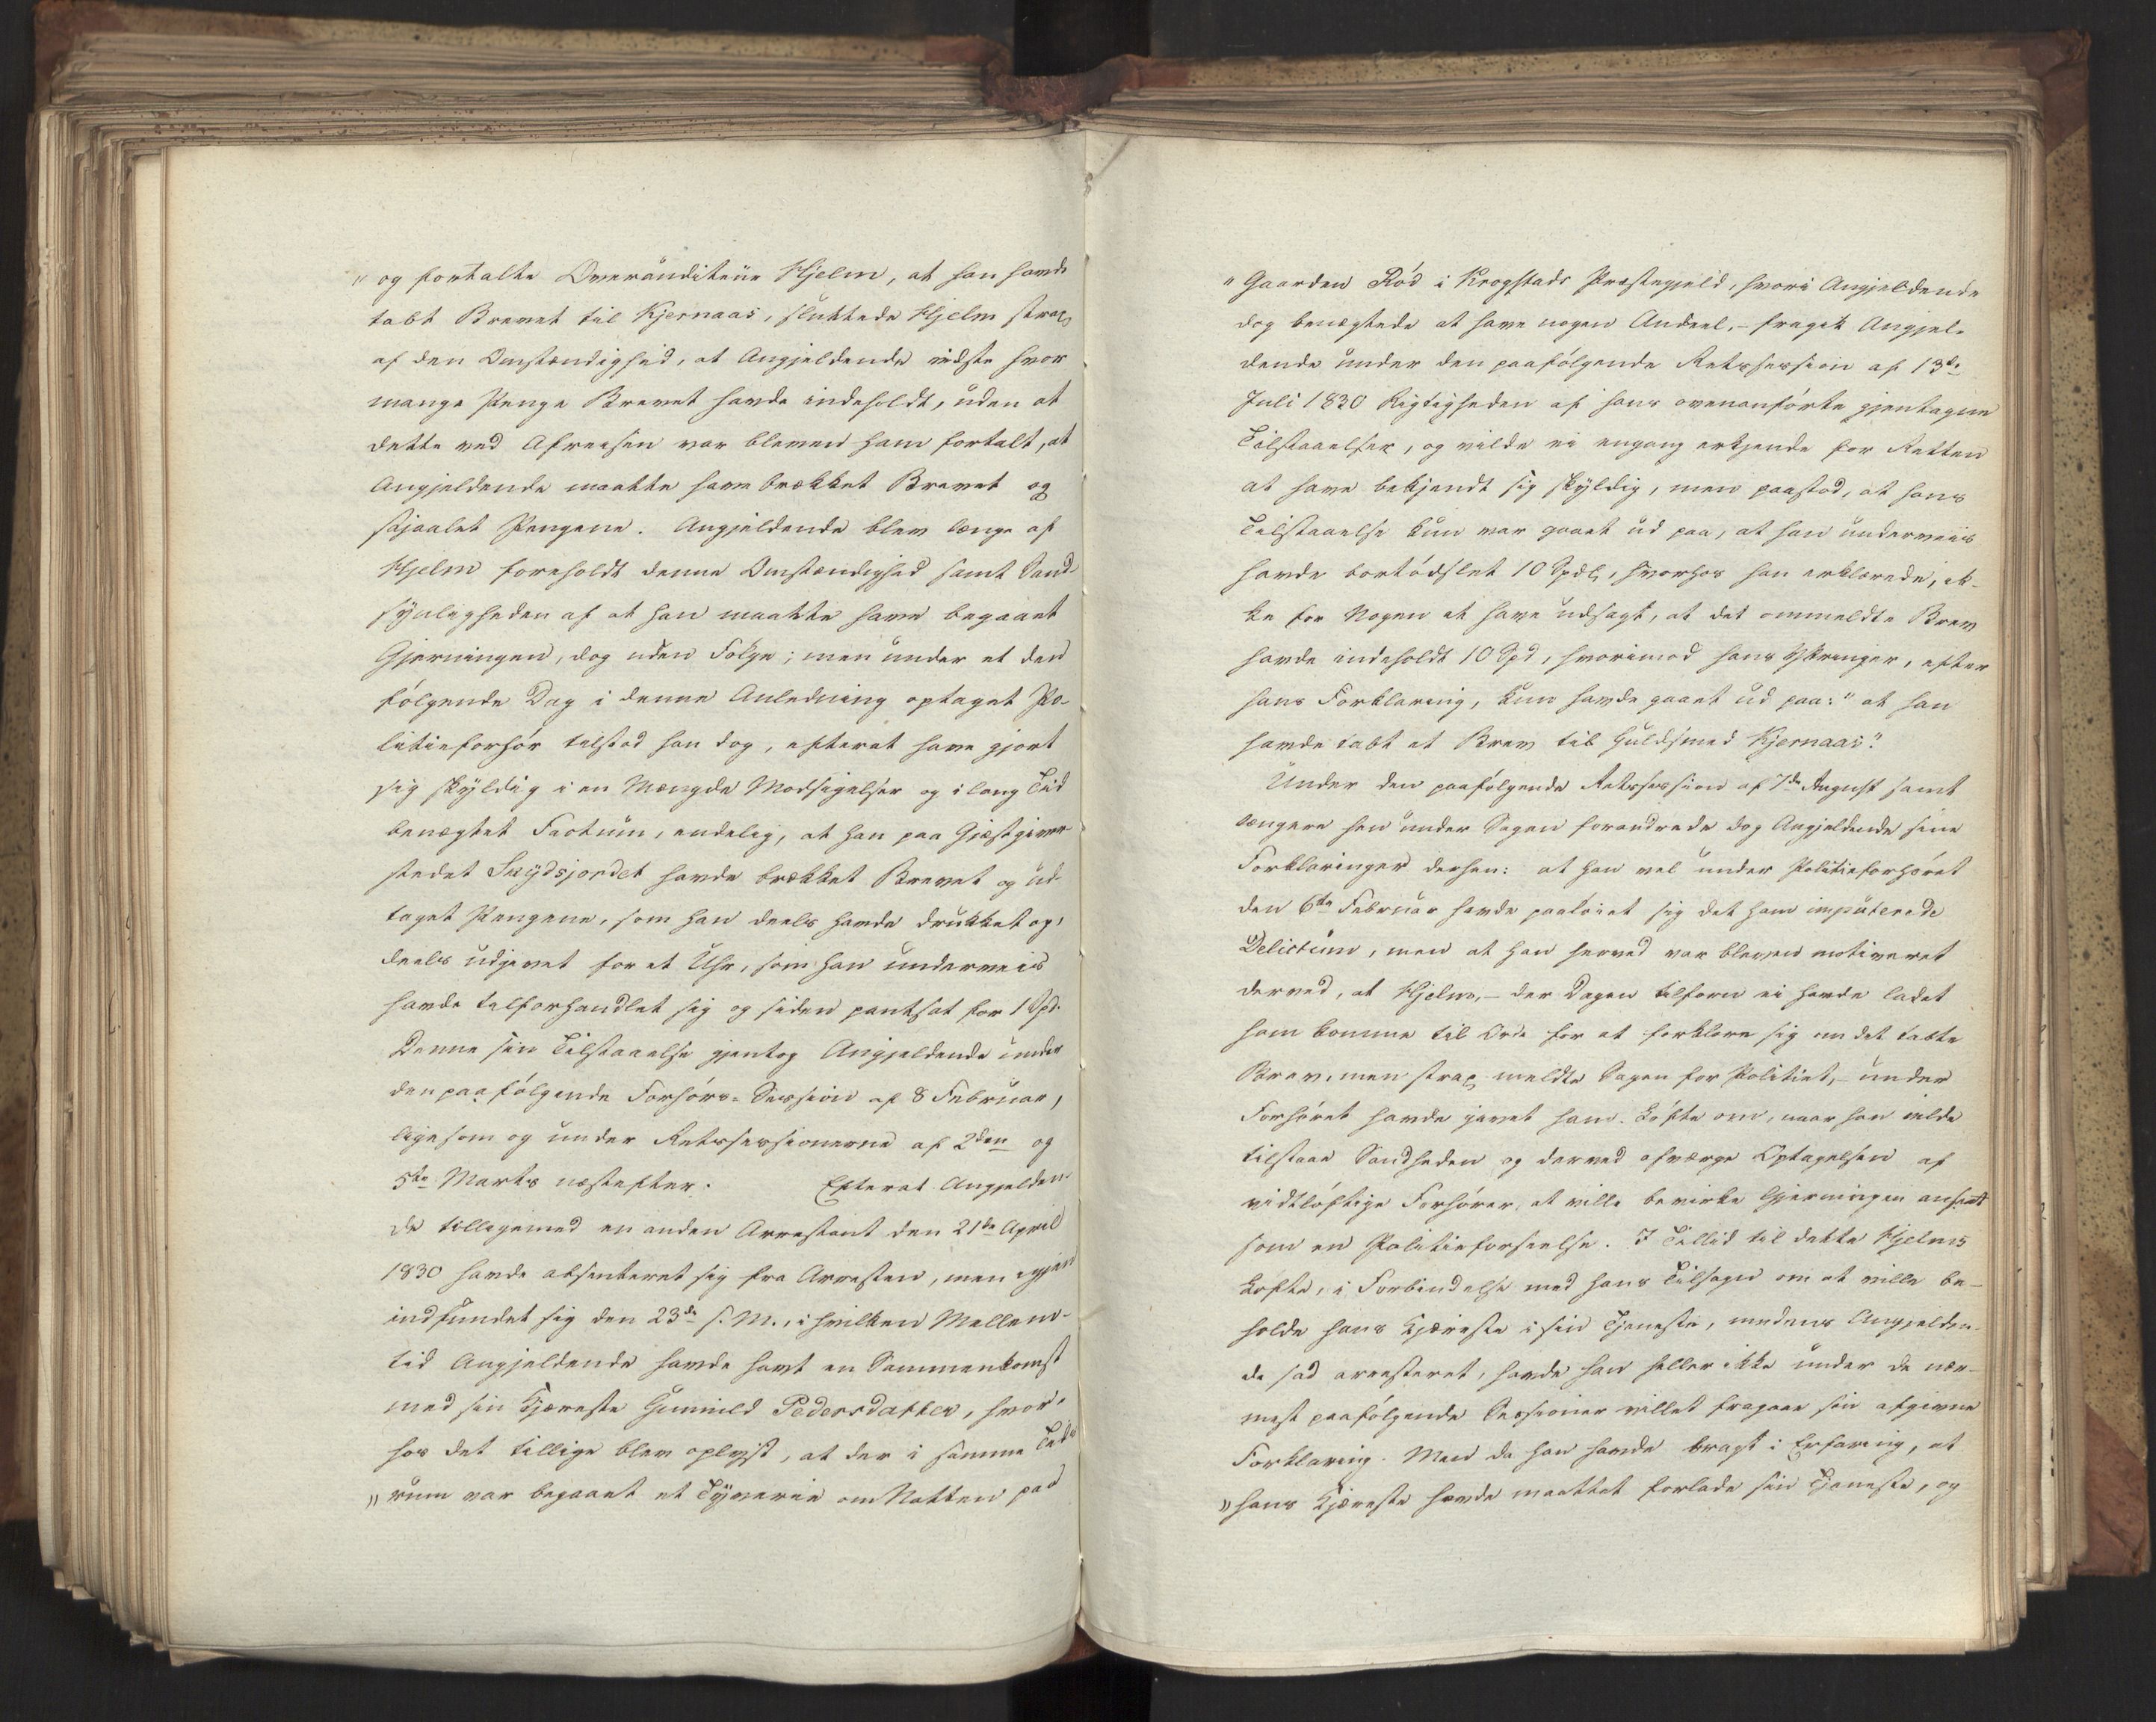 "og fortalte Overauditeur Hjelm, at han havde
tabt Brevet til Kjernaas, sluttede Hjelm strax
af den Omstændighed, at Angjeldende vidste hvor
mange Penge Brevet havde indeholdt, uden at
dette ved Afreisen var bleven ham fortalt, at
Angjeldende maatte have brækket Brevet og
stjaalet Pengene. Angjeldende blev længe af
Hjelm foreholdt denne Omstændighed samt Sand-
synligheden af at han maatte have begaaet
Gjerningen, dog uden Følge; men under et den
følgende Dag i denne Anledning optaget Po-
litieforhør tilstod han dog, efterat have gjort
sig skyldig i en Mængde Modsigelser og i lang Tid
benægtet Factum, endelig, at han paa Gjæstgiver-
stedet Skydsjordet havde brækket Brevet og ud-
taget Pengene, som han deels havde drukket op,
deels udgivet for et Uhr, som han underveis
havde tilforhandlet sig og siden pantsat for 1 Spd.
Denne sin Tilstaaelse gjentog Angjeldende under
den paafølgende Forhørs-Session af 8 Februar,
ligesom og under Retssessionerne af 2den og
5te Marts næstefter. Efterat Angjelden-
de tilligemed en anden Arrestant den 21de April
1830 havde absenteret sig fra Arresten, men igjen
indfundet sig den 23de s. M., i hvilken Mellem-
tid Angjeldende havde havt en Sammenkomst
med sin Kjæreste Gunnild Pedersdatter, hvor-
hos det tillige blev oplyst, at der i samme Tids-
"rum var begaaet et Tyverie om Natten paa
"Gaarden Röd i Krogstads Præstegjeld, hvori Angjeldende
dog benægtede at have nogen Andeel, - fragik Angjel-
dende under den paafølgende Retssession af 13de
Juli 1830 Rigtigheden af hans ovenanførte gjentagne
Tilstaaelser, og vilde ei engang erkjende for Retten
at have bekjendt sig skyldig, men paastod, at hans
Tilstaaelse kun var gaaet ud paa, at han underveiis
havde bortødslet 10 Spdl, hvorhos han erklærede, ik-
ke for Nogen at have udsagt, at det ommeldte Brev
havde indeholdt 10 Spd, hvorimod hans Yttringer, efter
hans Forklaring, kun havde gaaet ud paa: "at han
havde tabt et Brev til Guldsmed Kjernaas".
Under den paafølgende Retssession af 7de August samt
længere hen under Sagen forandrede dog Angjeldende sine
Forklaringer derhen: at han vel under Politieforhøret
den 6te Februar havde paaløiet sig det ham imputerede
Delictum, men at han herved var bleven motiveret
derved, at Hjelm, - der Dagen tilforn ei havde ladet
ham komme til Orde for at forklare sig om det tabte
Brev, men strax meldte Sagen for Politiet, - under
Forhøret havde givet ham Løfte om, naar han vilde
tilstaae Sandheden og derved afværge Optagelsen af
vidtløftige Forhører, at ville bevirke Gjerningen anseet
som en Politieforseelse. I Tillid til dette Hjelms
Løfte, i Forbindelse med hans Tilsagn om at ville be-
holde hans Kjæreste i sin Tjeneste, medens Angjelden-
de sad arresteret, havde han heller ikke under de nær-
mest paafølgende Sessioner villet fragaae sin afgivne
Forklaring. Men da han havde bragt i Erfaring, at
"hans Kjæreste havde maattet forlade sin Tjeneste, og